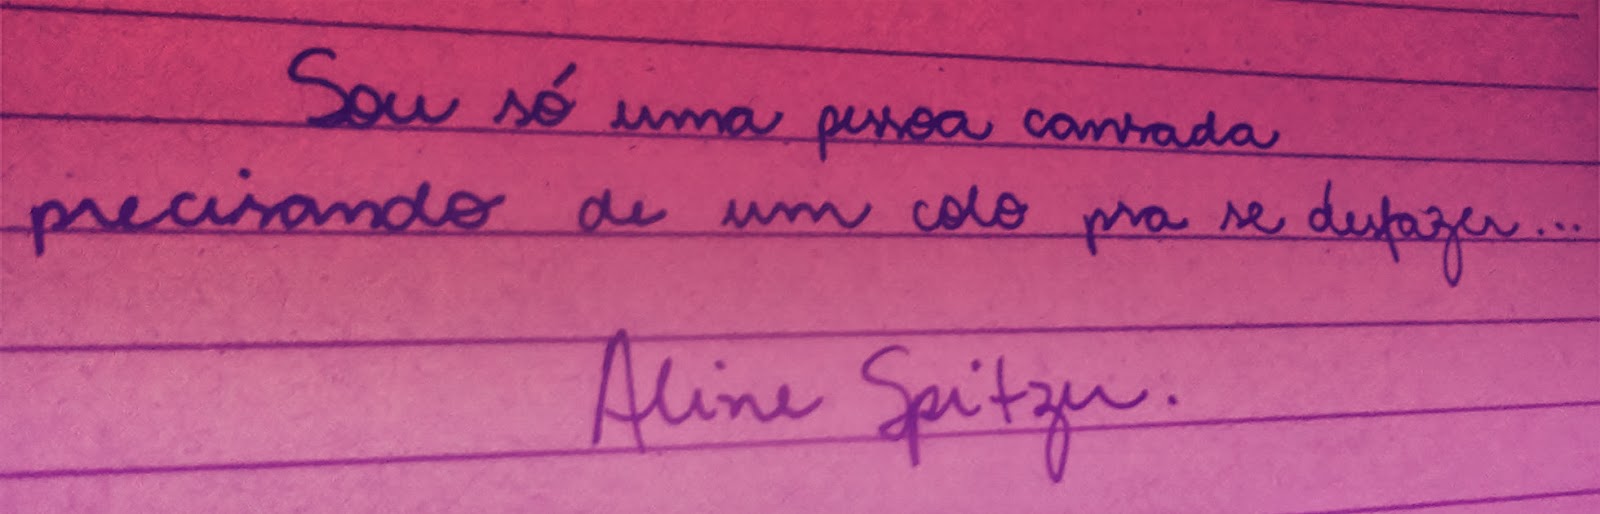 Sou só uma pessoa cansada
precisando de um colo pra se desfazer...
Aline Spitzer.